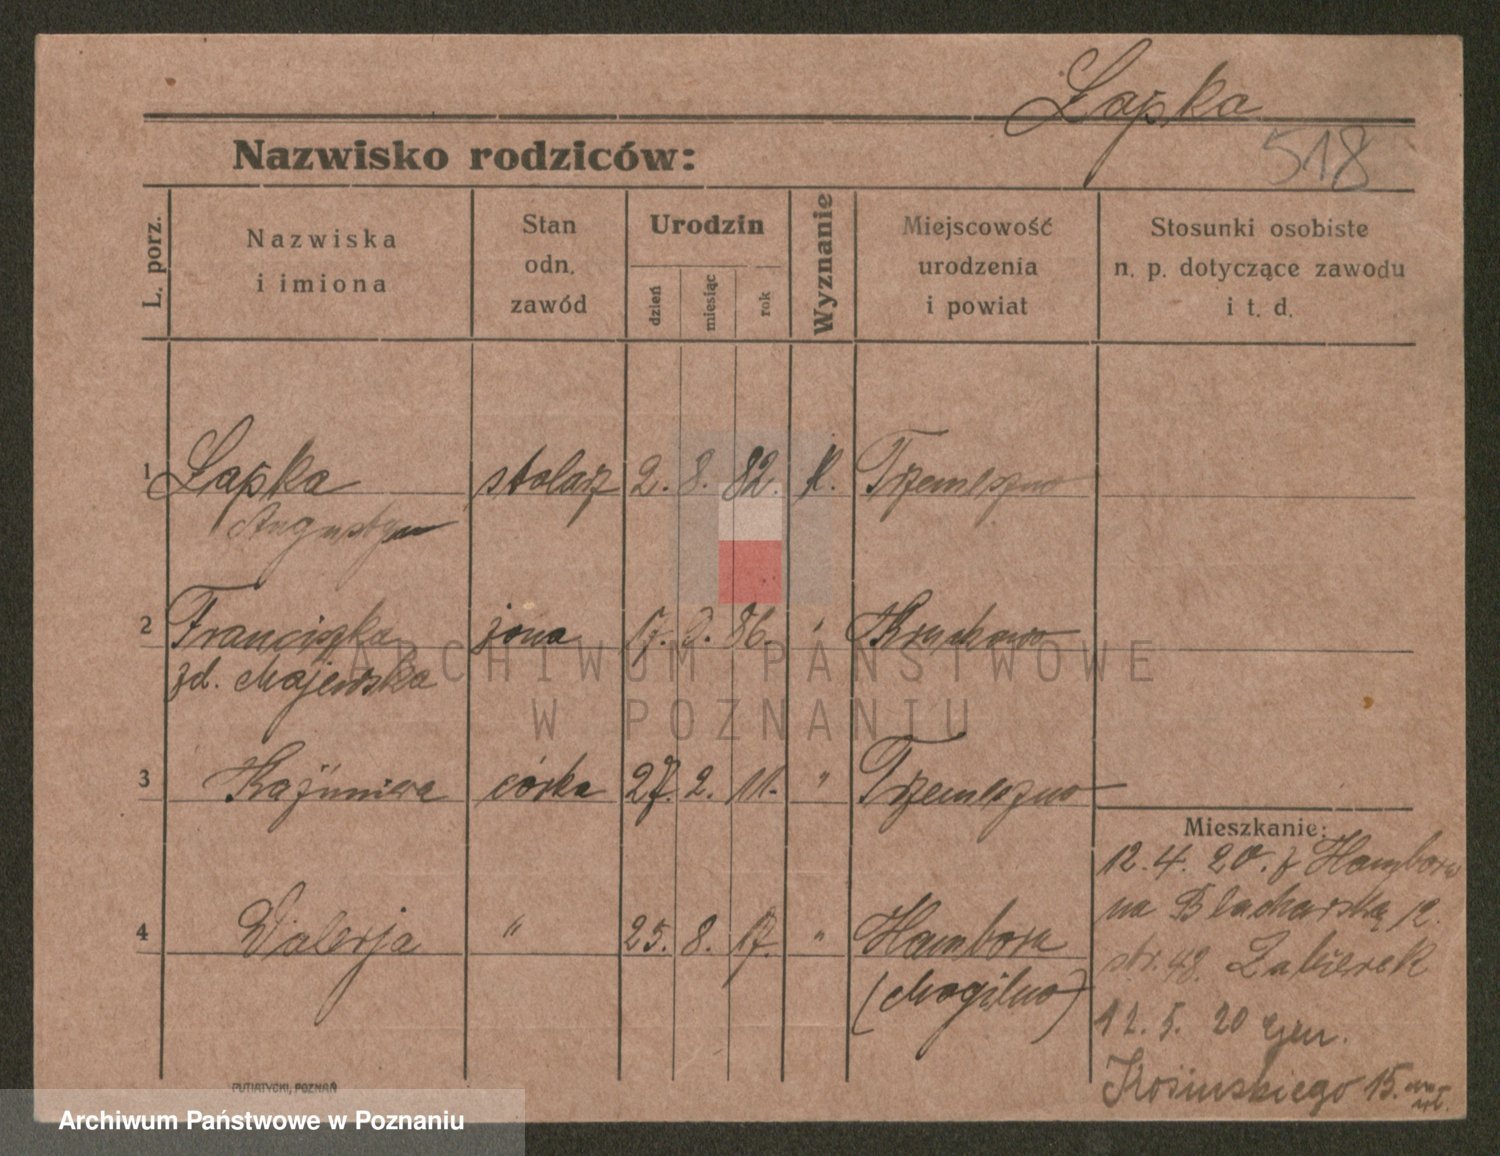 Łapka
518
Nazwisko rodziców:
L. porz.
Nazwiska
i imiona
Stan
odn.
zawód
Urodzin
dzień
miesiąc
rok
Wyznanie
Miejscowość
urodzenia
i powiat
Stosunki osobiste
n. p. dotyczące zawodu
i t. d.
1 Łapka stolarz 2. 8. 82. K. Trzemeszno
Augustyn
2 Franciszka żona 17. 9. 86. " Kruchowo
zd. Majewska
ARCHIWUM PAŃSTWOWE
W POZNANIU
3 Kaźmiera córka 27. 2. 11. " Trzemeszno
4 Walerja " 25. 8. 17. " Hamborn
(Mogilno)
Mieszkanie:
12. 4. 20. z Hamborn
na Blacharską 12.
str. 48.
12. 5. 20 Gen.
Kosińskiego 15.
PUTIATYCKI, POZNAŃ
Archiwum Państwowe w Poznaniu